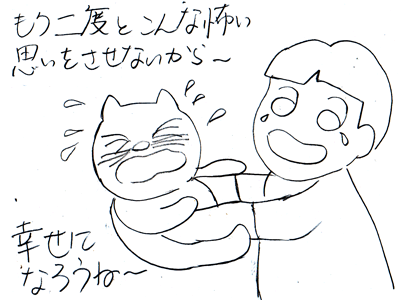 もう二度とこんな怖い
思いをさせないから～
幸せに
なろうね～